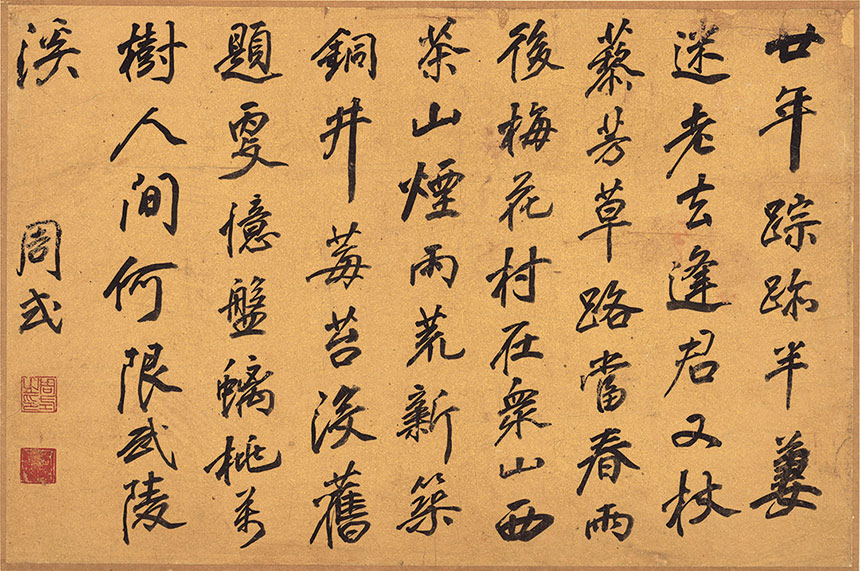 廿年踪跡半萋
迷老去逢君又杖
藜芳草路當春雨
後梅花村在衆山西
茶山煙雨荒新築
銅井莓苔没舊
題更憶盤螭桃萬
樹人間何限武陵
溪
周式